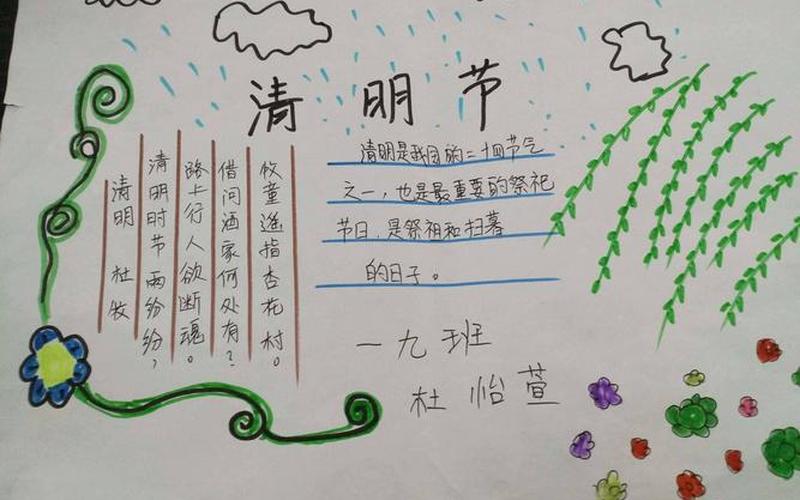 清明节
清明 杜牧
清明时节雨纷纷，
路上行人欲断魂。
借问酒家何处有？
牧童遥指杏花村。
清明是我国的二十四节气
之一，也是最重要的祭祀
节日，是祭祖和扫墓
的日子。
一九班
杜怡萱